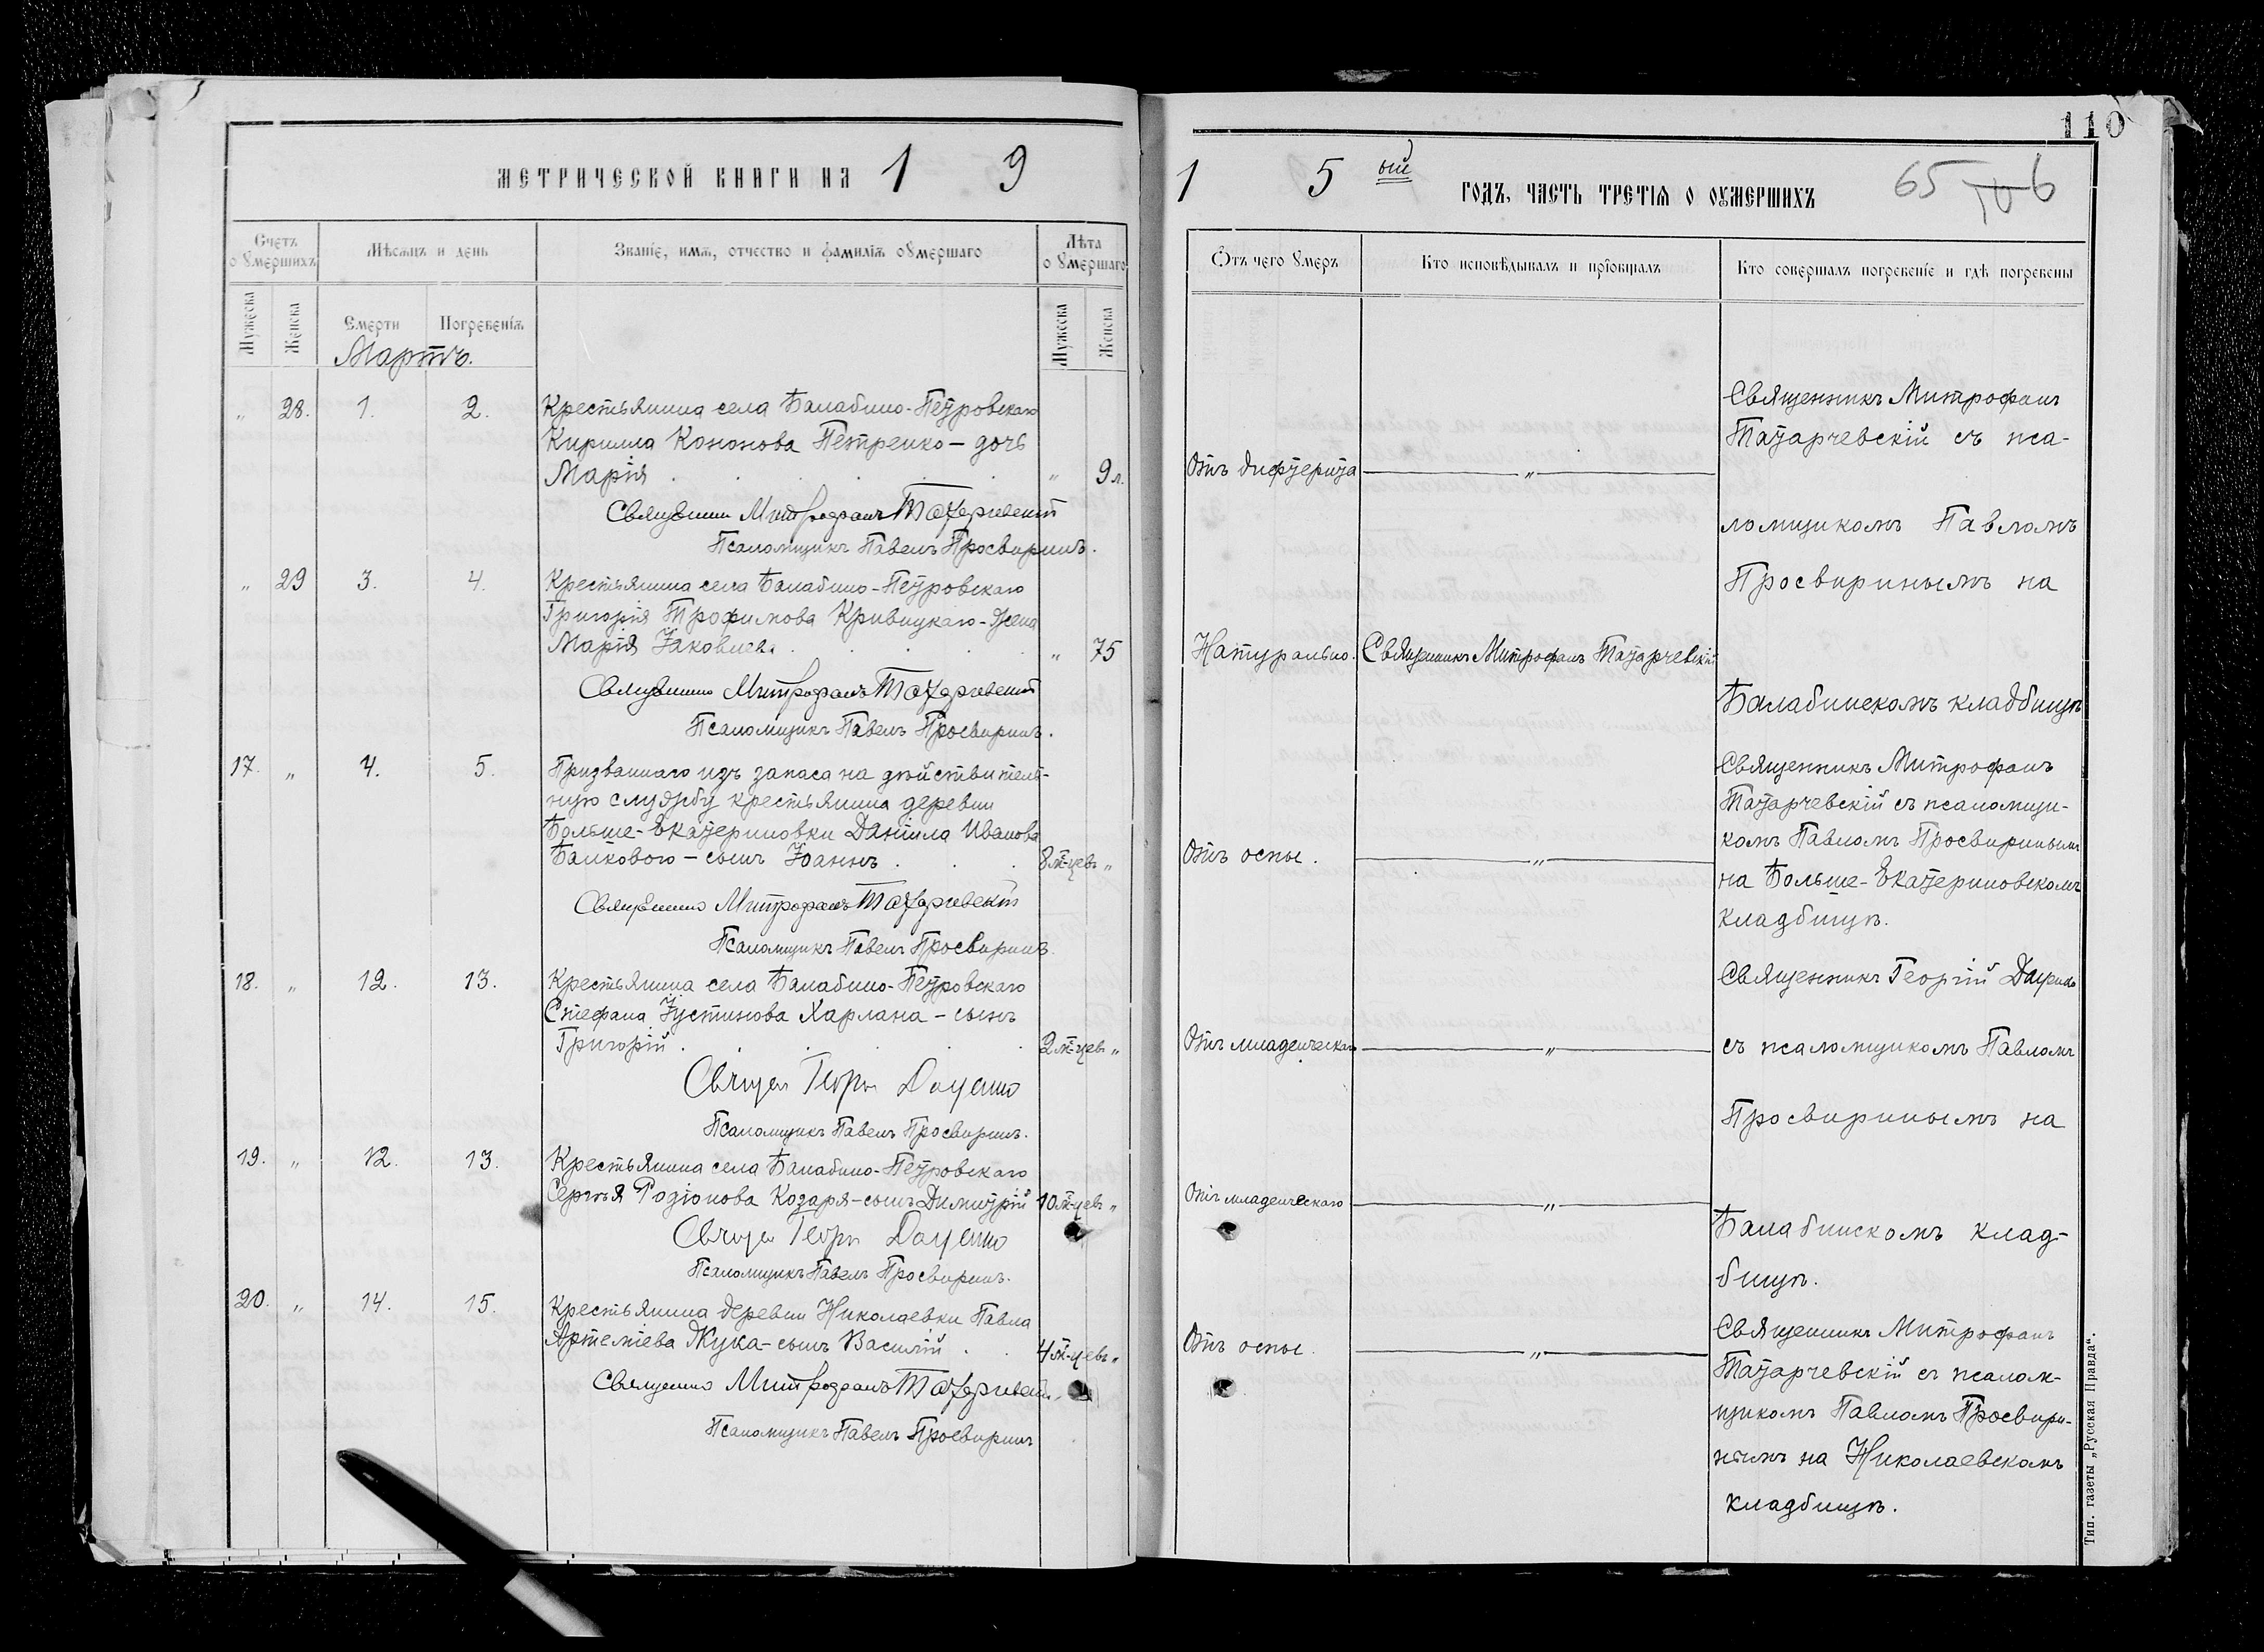 110
МЕТРИЧЕСКОЙ КНИГИ НА 1 9
1 5 ый ГОДЪ, ЧАСТЬ ТРЕТІЯ О ОУМЕРШИХЪ 65
Счетъ
о умершихъ
Мѣсяцъ и день
Званіе, имя, отчество и фамилія оумершаго
Лѣта
о умершаго
Мужеска
Женска
Смерти
Погребенія
Мужеска
Женска
Мартъ.
„ 28. 1. 2. Крестьянина села Балабино-Петровскаго
Кирилла Кононова Петренко – дочь
Марія . „ 9 л.
Священник Митрофанъ Татарчевскій
Псаломщикъ Павелъ Просвиринъ.
„ 29 3. 4. Крестьянина села Балабино-Петровскаго
Григорія Трофимова Кривицкаго-жена
Марія Іаковлева . „ 75
Священник Митрофанъ Татарчевскій
Псаломщикъ Павелъ Просвиринъ.
17. „ 4. 5. Призваннаго изъ запаса на дѣйствитель-
ную службу крестьянина деревни
Больше-Екатериновки Даніила Иванова
Байкового – сынъ Іоаннъ . 8 м-цевъ „
Священник Митрофанъ Татарчевскій
Псаломщикъ Павелъ Просвиринъ.
18. „ 12. 13. Крестьянина села Балабино-Петровскаго
Стефана Іустинова Харлана – сынъ
Григорій . 2 м-цев „
Священ Георгій
Псаломщикъ Павелъ Просвиринъ.
19. „ 12. 13. Крестьянина села Балабино-Петровскаго
Сергѣя Родіонова Козаря-сынъ Димитрій 10 м-цевъ „
Священ Георгій
Псаломщикъ Павелъ Просвиринъ.
20. „ 14. 15. Крестьянина деревни Николаевки Павла
Артеміева Жука-сынъ Василій . 4 м-цевъ „
Священник Митрофанъ Татарчевскій
Псаломщикъ Павелъ Просвиринъ
Отъ чего умеръ
Кто исповѣдывалъ и пріобщалъ
Кто совершалъ погребеніе и гдѣ погребены
Священникъ Митрофанъ
Татарчевскій съ пса-
Отъ дифтерита „
ломщикомъ Павломъ
Просвиринымъ на
Натурально. Священникъ Митрофанъ Татарчевскій
Балабинскомъ кладбищѣ
Священникъ Митрофанъ
Татарчевскій съ псаломщи-
комъ Павломъ Просвиринымъ
Отъ оспы. „
на Больше-Екатериновскомъ
кладбищѣ.
Священникъ Георгій
Отъ младенческаго „ съ псаломщикомъ Павломъ
Просвиринымъ на
Отъ младенческаго „
Балабинскомъ клад-
бищѣ.
Священникъ Митрофанъ
Отъ оспы. „
Татарчевскій съ псалом-
щикомъ Павломъ Просвири-
нымъ на Николаевскомъ
кладбищѣ.
Тип. газеты „Русская Правда“.